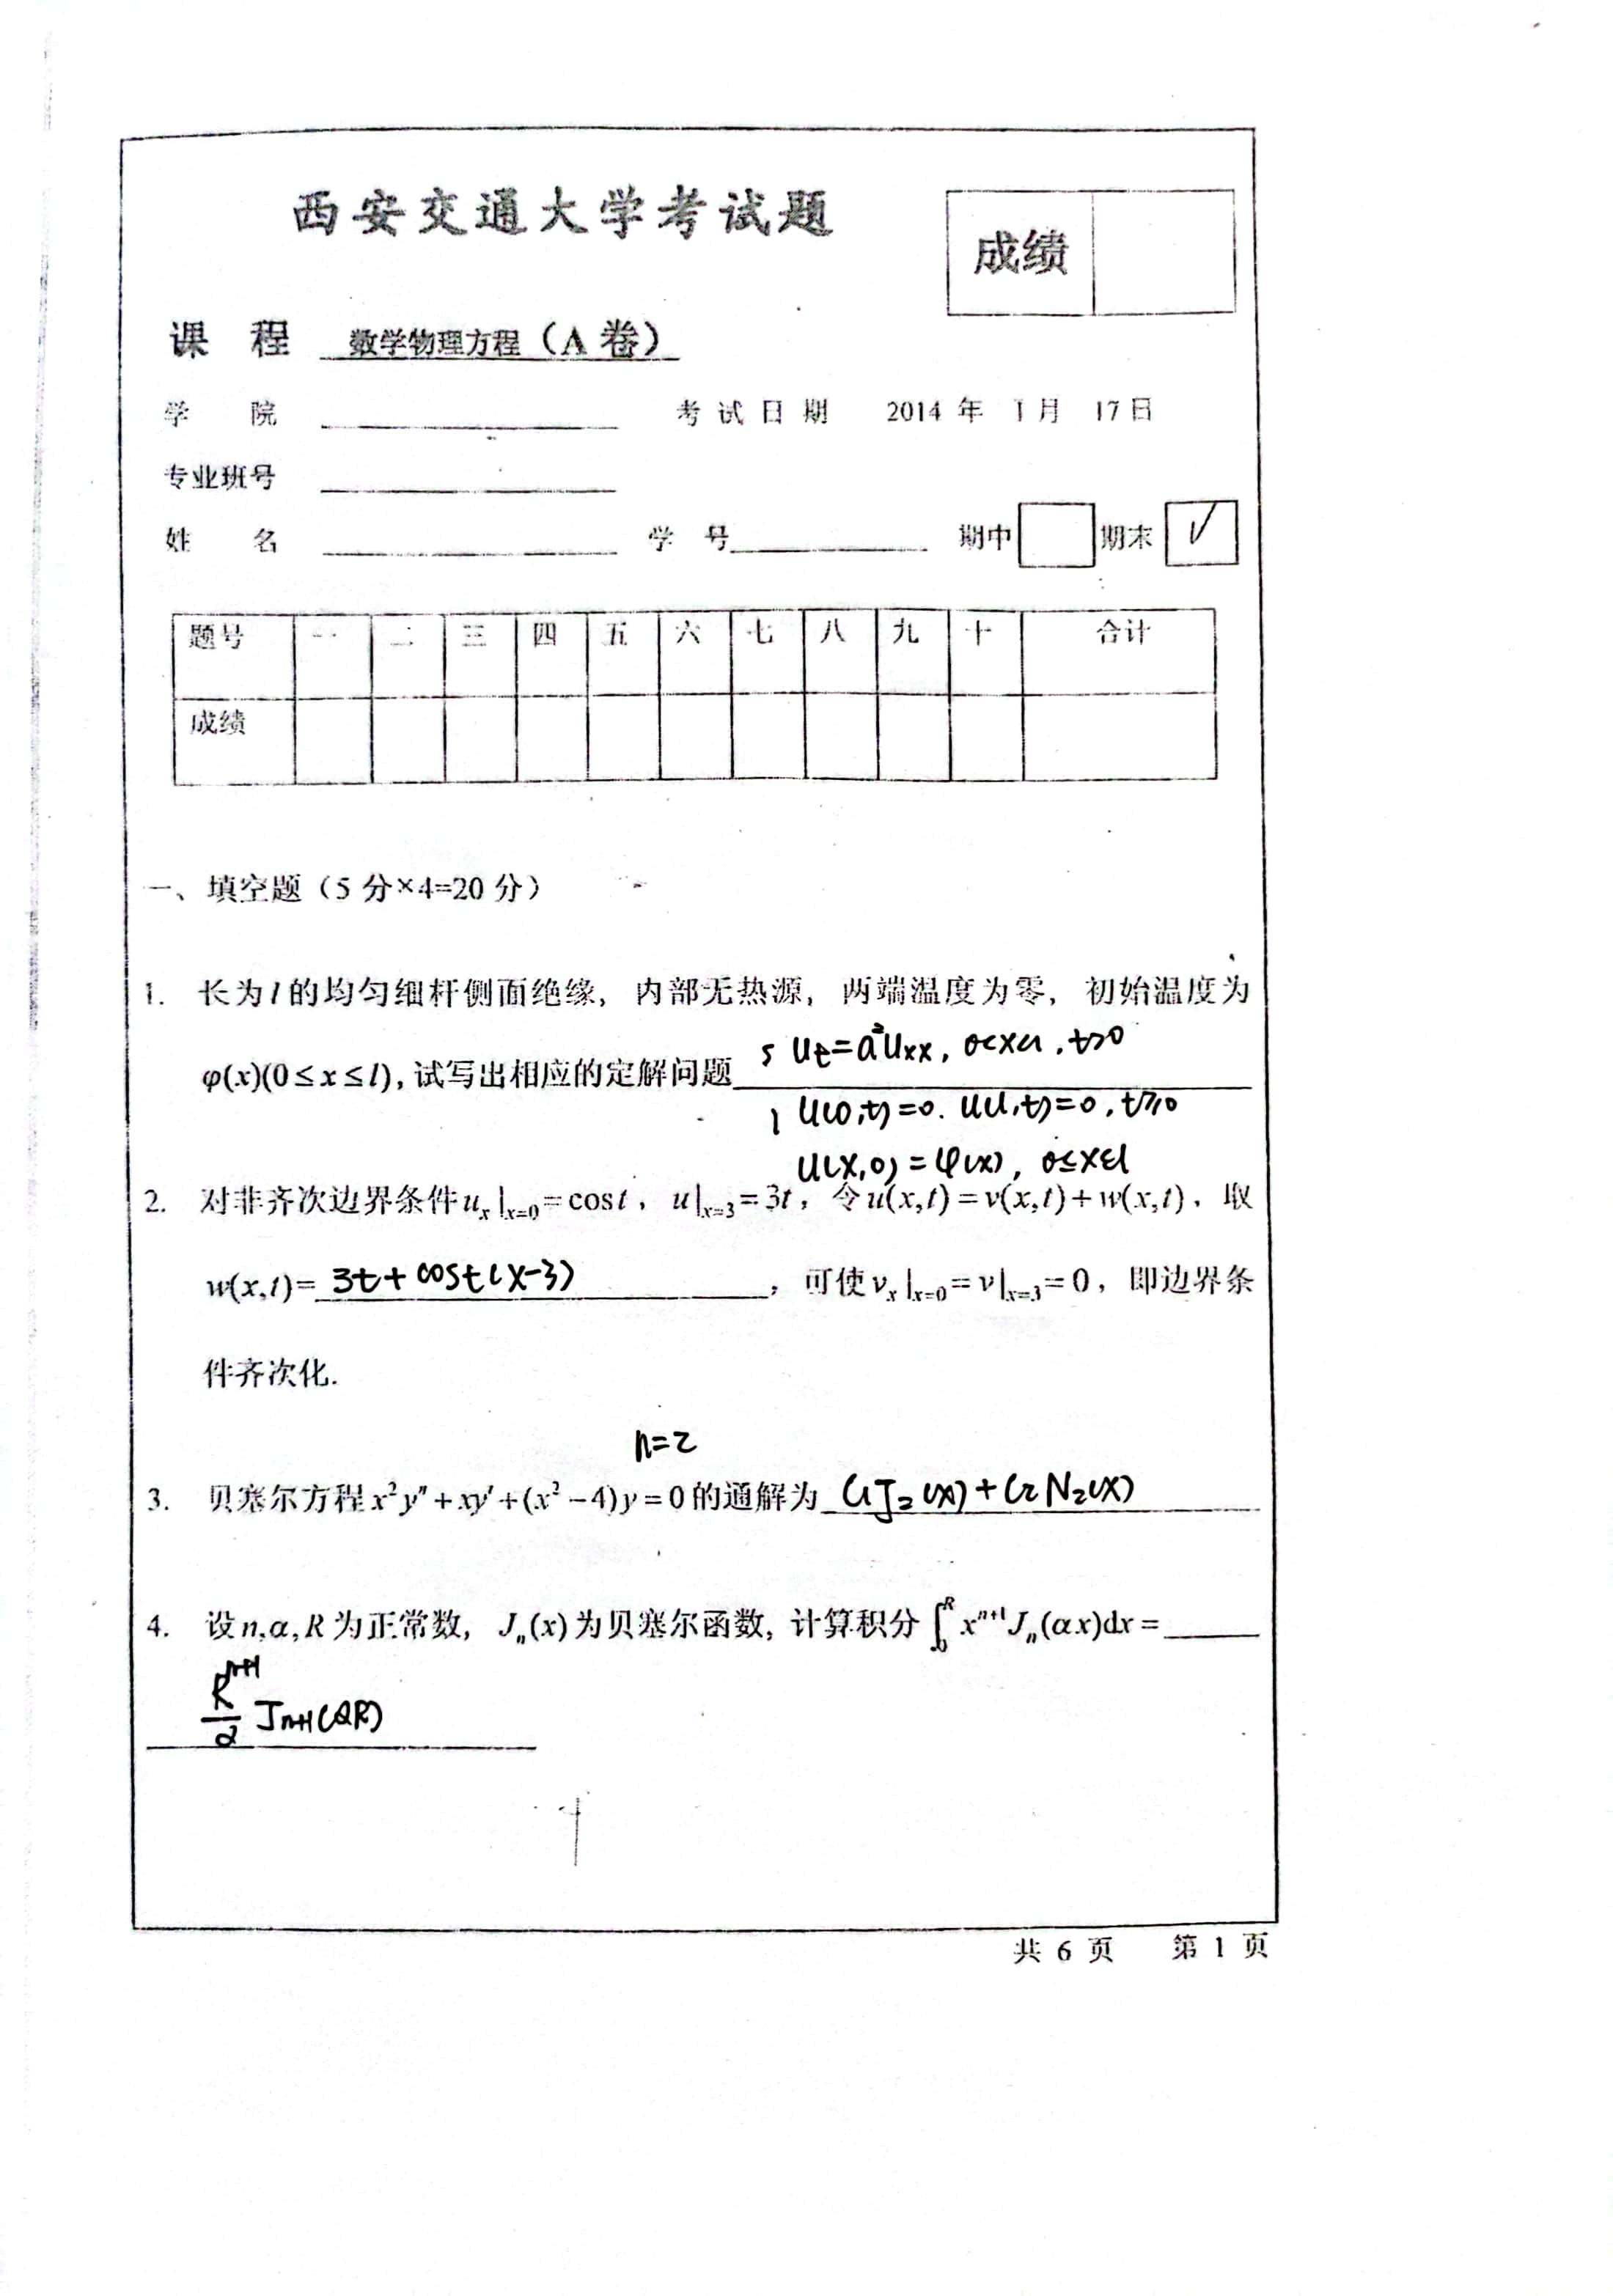 西安交通大学考试题
成绩
课 程 数学物理方程（A 卷）
学 院 考试日期 2014 年 1 月 17 日
专业班号
姓 名 学 号 期中 期末 √
题号 一 二 三 四 五 六 七 八 九 十 合计
成绩
一、填空题（5 分×4=20 分）
1. 长为 l 的均匀细杆侧面绝缘，内部无热源，两端温度为零，初始温度为
φ(x)(0≤x≤l), 试写出相应的定解问题 { u_t=a²u_xx, 0<x<l, t>0
u(0,t)=0. u(l,t)=0, t≥0
u(x,0)=φ(x), 0≤x≤l
2. 对非齐次边界条件 u_x|_{x=0}=cos t，u|_{x=3}=3t，令 u(x,t)=v(x,t)+w(x,t)，取
w(x,t)= 3t+cost(x-3)，可使 v_x|_{x=0}=v|_{x=3}=0，即边界条
件齐次化.
n=2
3. 贝塞尔方程 x²y″+xy′+(x²−4)y=0 的通解为 C₁J₂(x)+C₂N₂(x)
4. 设 n,α,R 为正常数，J_n(x) 为贝塞尔函数，计算积分 ∫_0^R x^{n+1}J_n(αx)dx=
R^{n+1}/α J_{n+1}(αR)
共 6 页 第 1 页